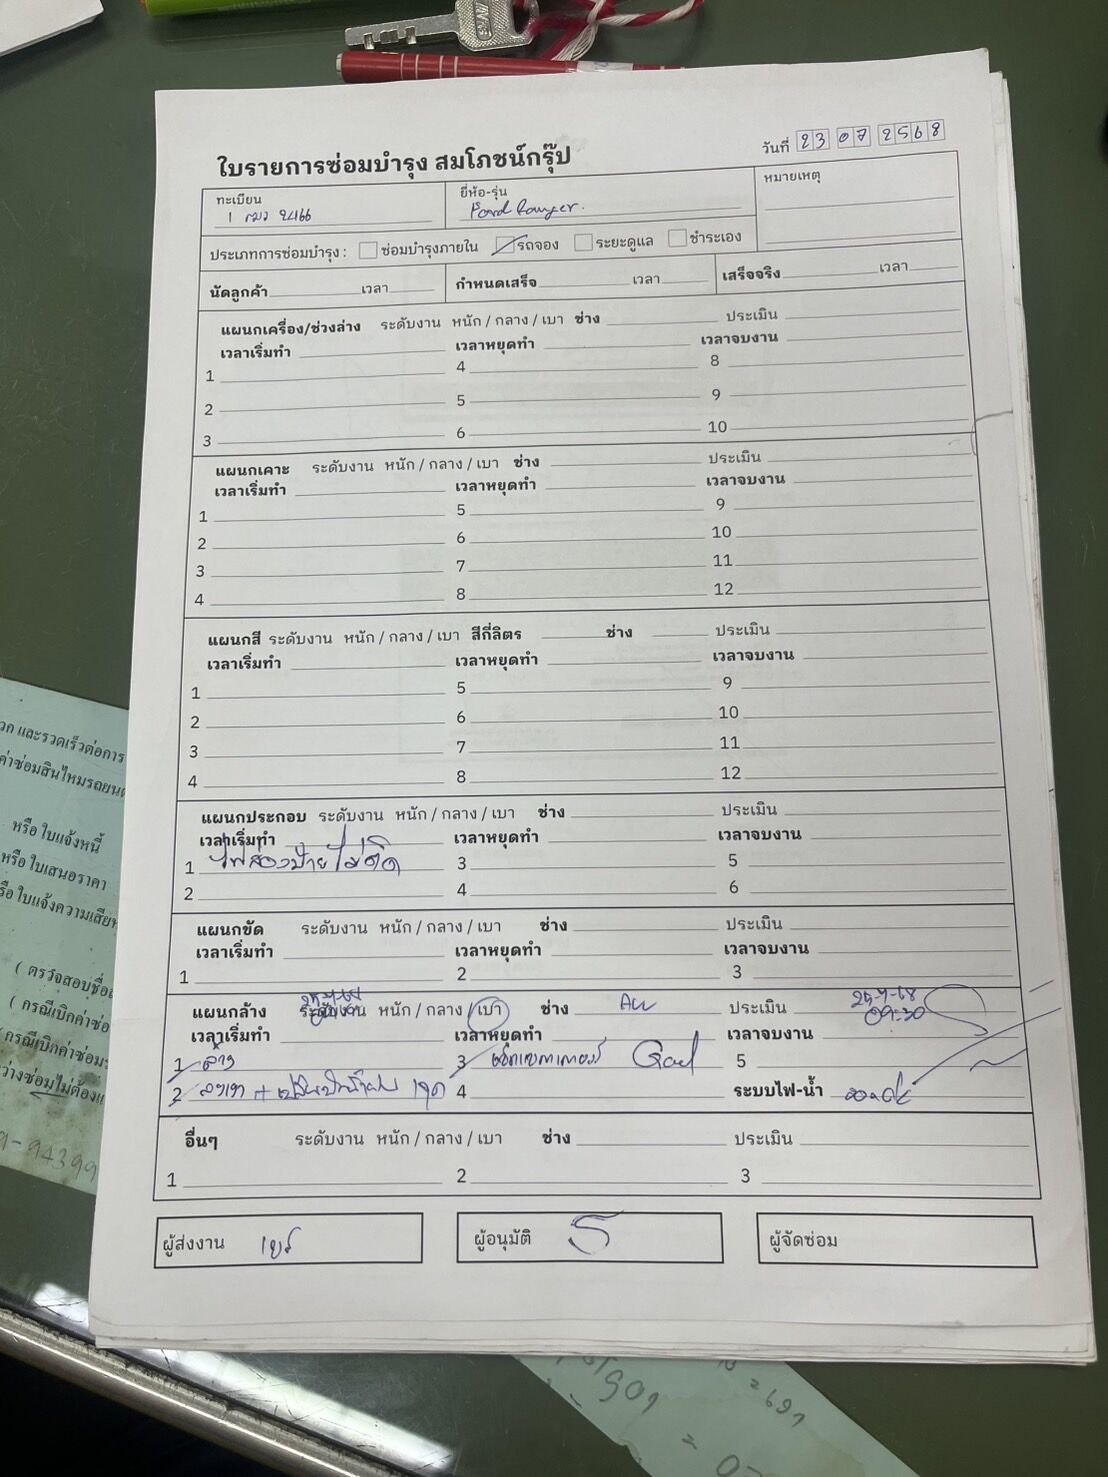 ใบรายการซ่อมบำรุง สมโภชน์กรุ๊ป
วันที่ 23 07 2568
ทะเบียน
2466
ยี่ห้อ-รุ่น
Ford Ranger.
หมายเหตุ
ประเภทการซ่อมบำรุง : ซ่อมบำรุงภายใน รถจอง ระยะดูแล ชำระเอง
นัดลูกค้า เวลา กำหนดเสร็จ เวลา เสร็จจริง เวลา
แผนกเครื่อง/ช่วงล่าง ระดับงาน หนัก / กลาง / เบา ช่าง ประเมิน
เวลาเริ่มทำ เวลาหยุดทำ เวลาจบงาน
1 4 8
2 5 9
3 6 10
แผนกเคาะ ระดับงาน หนัก / กลาง / เบา ช่าง ประเมิน
เวลาเริ่มทำ เวลาหยุดทำ เวลาจบงาน
1 5 9
2 6 10
3 7 11
4 8 12
แผนกสี ระดับงาน หนัก / กลาง / เบา สีกี่ลิตร ช่าง ประเมิน
เวลาเริ่มทำ เวลาหยุดทำ เวลาจบงาน
1 5 9
2 6 10
3 7 11
4 8 12
แผนกประกอบ ระดับงาน หนัก / กลาง / เบา ช่าง ประเมิน
เวลาเริ่มทำ เวลาหยุดทำ เวลาจบงาน
1 ไฟส่องป้ายไม่ติด 3 5
2 4 6
แผนกขัด ระดับงาน หนัก / กลาง / เบา ช่าง ประเมิน
เวลาเริ่มทำ เวลาหยุดทำ เวลาจบงาน
1 2 3
แผนกล้าง ระดับงาน หนัก / กลาง / เบา ช่าง ประเมิน
09:30
เวลาเริ่มทำ เวลาหยุดทำ เวลาจบงาน
1 ล้าง 3 5
2 4 ระบบไฟ-น้ำ
อื่นๆ ระดับงาน หนัก / กลาง / เบา ช่าง ประเมิน
1 2 3
ผู้ส่งงาน
ผู้อนุมัติ
ผู้จัดซ่อม
วก และรวดเร็วต่อการ
ค่าซ่อมสินไหมรถยนต์
หรือ ใบแจ้งหนี้
หรือ ใบเสนอราคา
รือ ใบแจ้งความเสีย
( ตรวจสอบชื่อ
( กรณีเบิกค่าซ่อ
(กรณีเบิกค่าซ่อม
ว่างซ่อมไม่ต้อง
9-94399